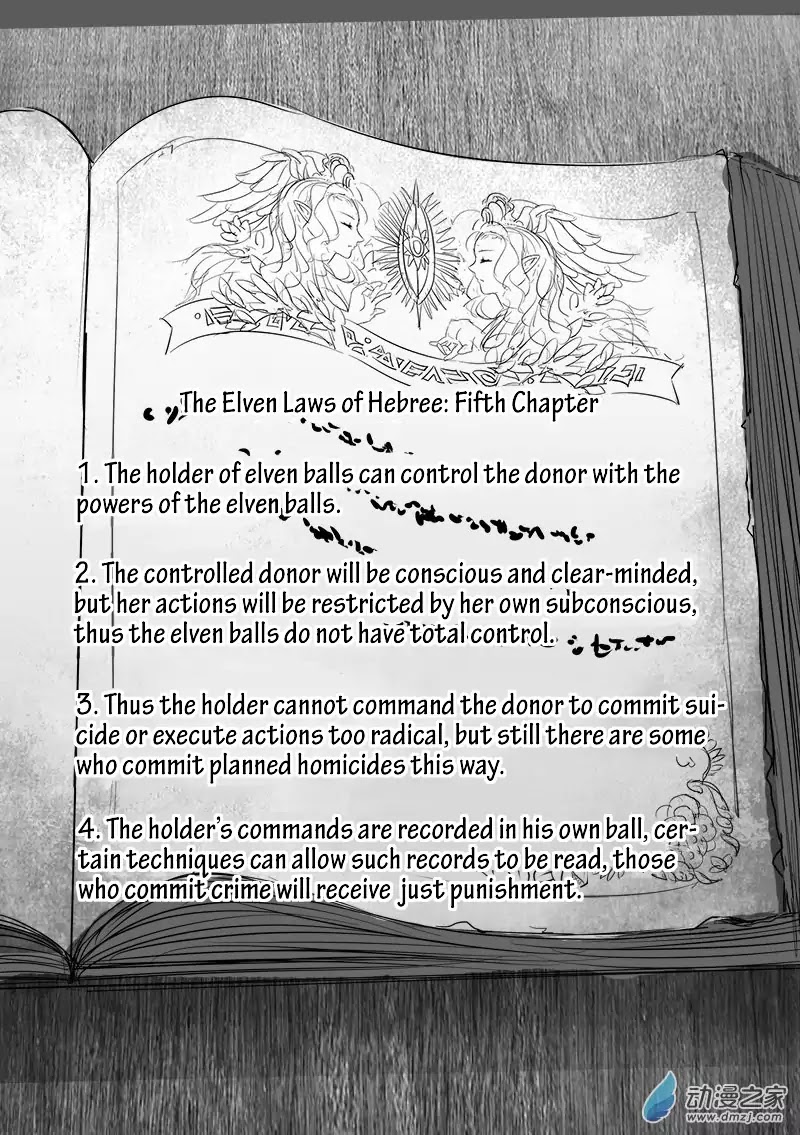 The Elven Laws of Hebree: Fifth Chapter
1. The holder of elven balls can control the donor with the
powers of the elven balls.
2. The controlled donor will be conscious and clear-minded,
but her actions will be restricted by her own subconscious,
thus the elven balls do not have total control.
3. Thus the holder cannot command the donor to commit sui-
cide or execute actions too radical, but still there are some
who commit planned homicides this way.
4. The holder's commands are recorded in his own ball, cer-
tain techniques can allow such records to be read, those
who commit crime will receive just punishment.
动漫之家
www.dmzj.com